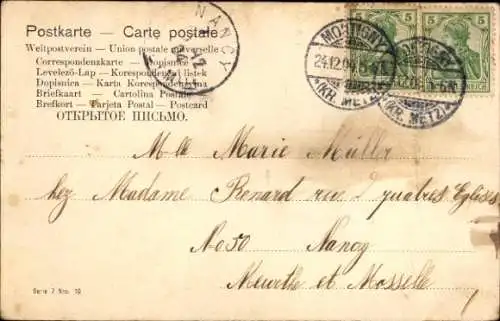 Postkarte - Carte postale
Weltpostverein - Union postale universelle
Correspondenzkarte - Dopisnice
Levelező-Lap - Korespondenční lístek
Dopisnica - Karta Korespondencyjna
Briefkaart - Cartolina Postale
Brefkort - Tarjeta Postal - Postcard
ОТКРЫТОЕ ПИСЬМО.
NANCY
5 5
MONTIGNY
24.12.04
(KR. METZ)
MONTIGNY
(KR. METZ)
Mlle Marie Müller
chez Madame Renard rue d quatres Eglises
No 50 Nancy
Meurthe et Moselle
Serie 7 Nro. 10